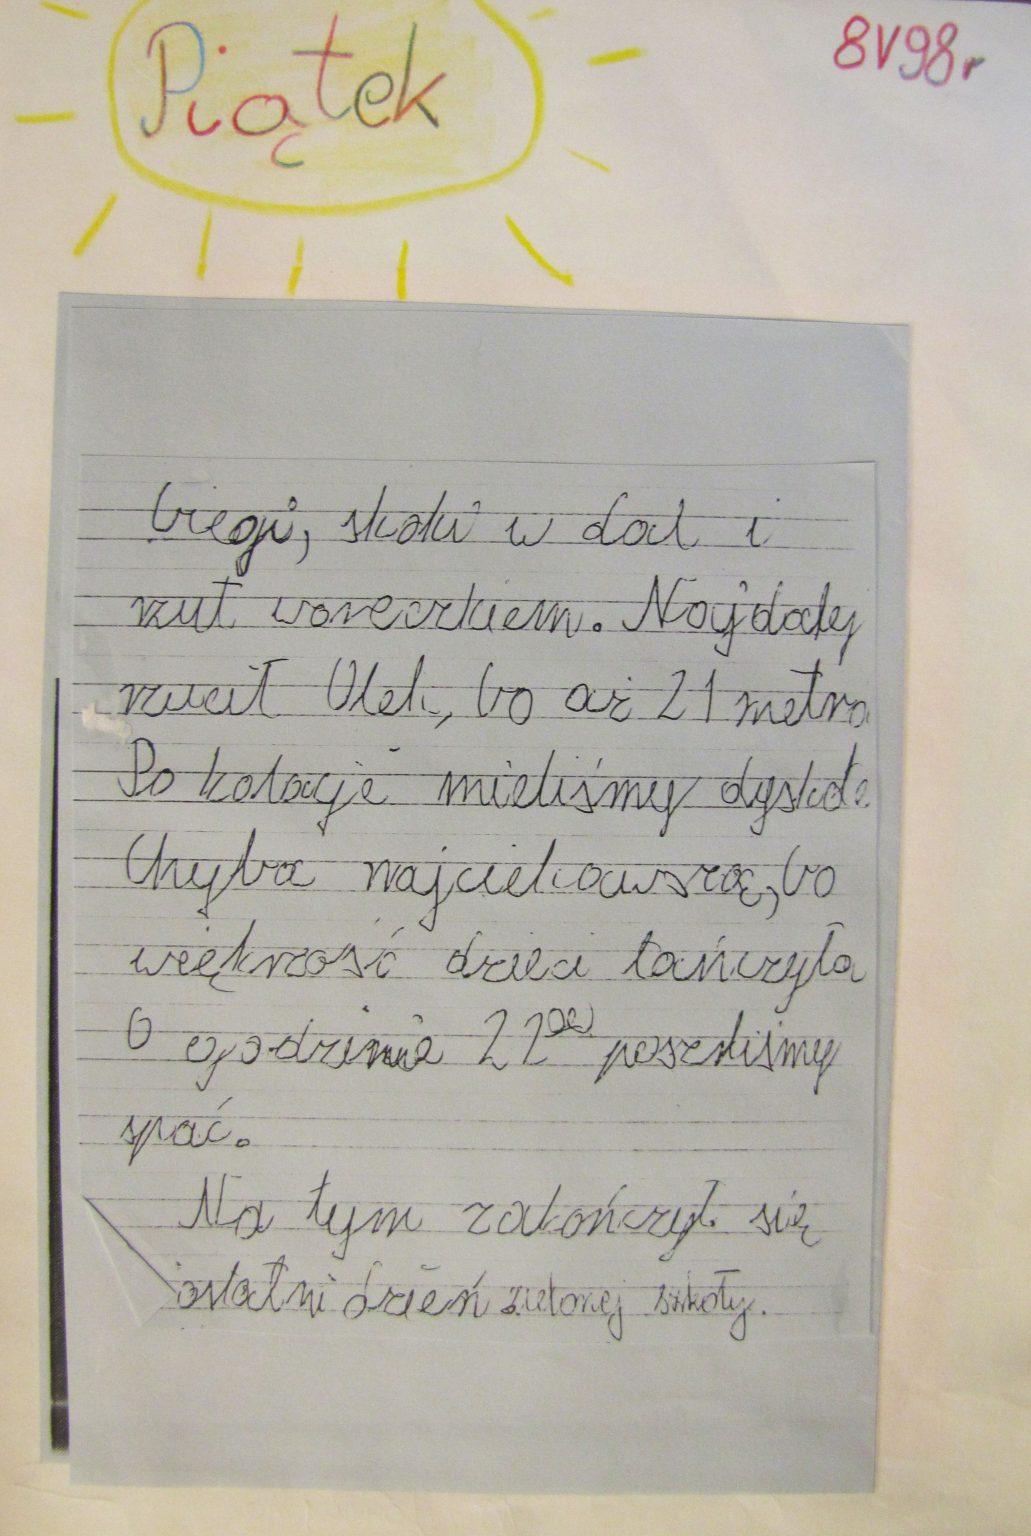 Piątek
8 V 98 r
biegi, skoki w dal i
rzut woreczkiem. Najdalej
rzucił Olek, bo aż 21 metra
Po kolacji mieliśmy dyskote
Chyba najciekawszą, bo
większość dzieci tańczyła
O godzinie 22⁰⁰ poszliśmy
spać.
Na tym zakończył się
ostatni dzień zielonej szkoły.